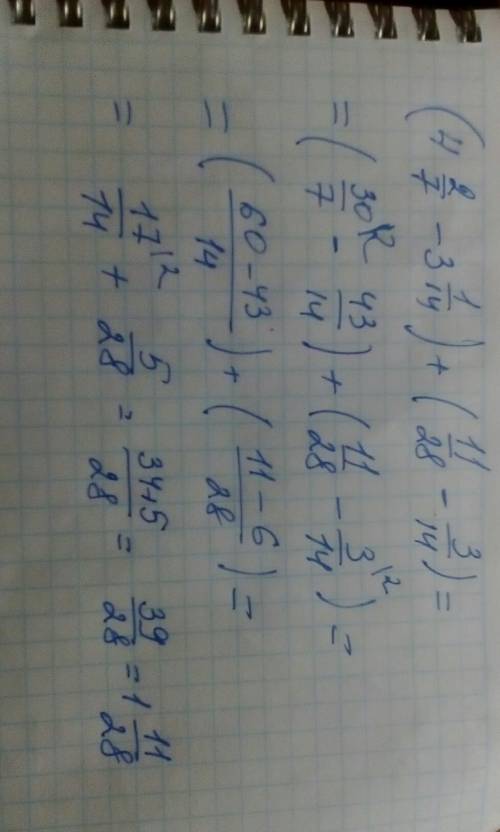 (4 2/7 - 3 1/14) + (11/28 - 3/14) =
= (30/7 |2 - 43/14) + (11/28 - 3/14 |2) =
= ((60 - 43)/14) + ((11 - 6)/28) =
= 17/14 |2 + 5/28 = (34+5)/28 = 39/28 = 1 11/28